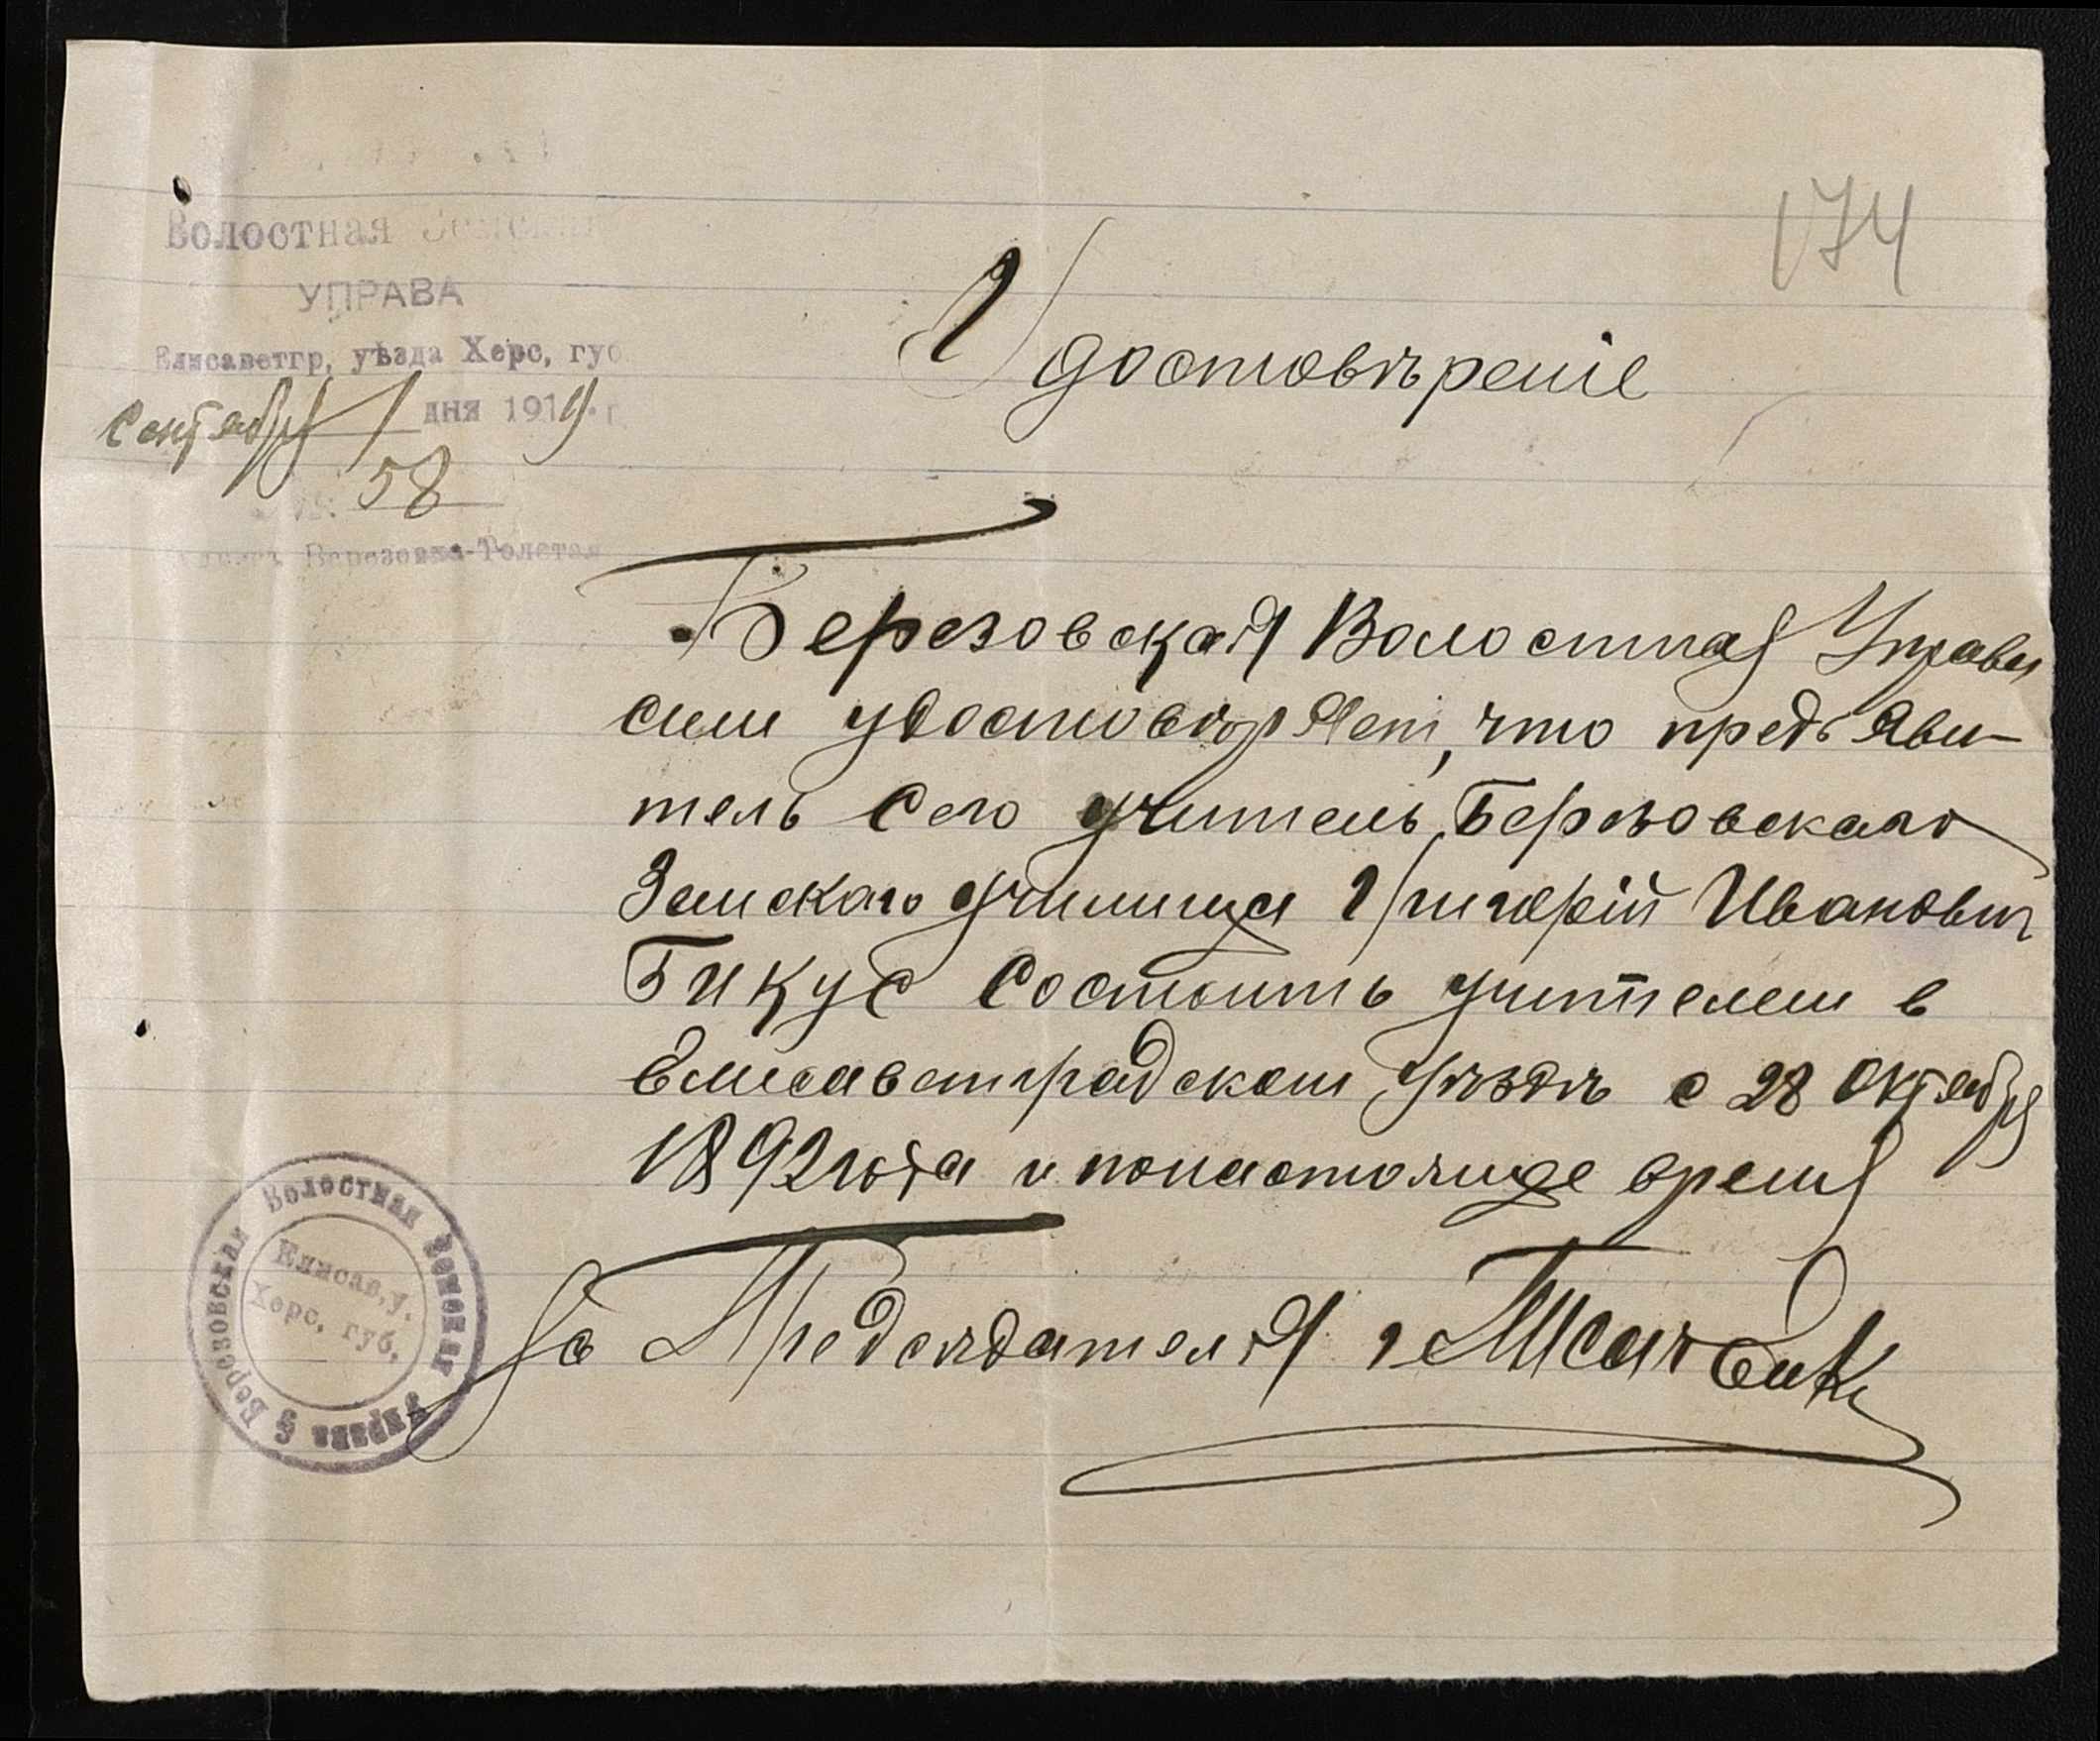 174
Волостная Земская
УПРАВА
Елисаветгр, уѣзда Херс, губ.
Сентября 1 дня 1919 г.
№ 58
Березовка-Толстая
Удостовѣреніе
Березовская Волостная Управа
сим удостовѣряет, что предъяви-
тель сего учитель Березовскаго
Земскаго училища Григорій Иванович
Бикус состоить учителем в
Елисаветградском уѣздѣ с 28 Октября
1892 года и понастоящее время
За Председателя
Березовская Волостная Земская Управа
Елисав, у.
Херс, губ,